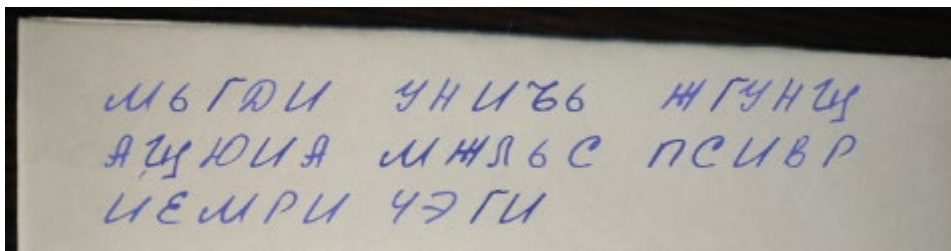 МЬГДИ УНИЪЬ ЖГУНЩ
АЩЮИА МЖЛЬС ПСИВР
ИЕМРИ ЧЭГИ